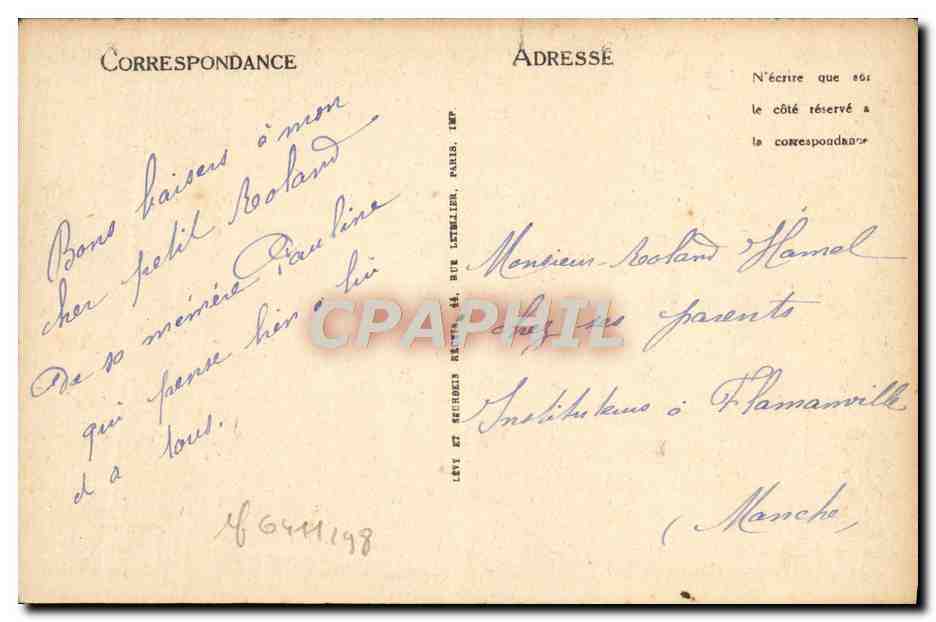 CORRESPONDANCE
Bons baisers à mon
cher petit Roland
De sa mémère Pauline
qui pense bien à lui
et a tous.
6411198
LÉVY ET NEURDEIS RÉUNIS, 44, RUE LETELLIER, PARIS, IMP.
ADRESSE
N'écrire que sur
le côté réservé a
la correspondance
Monsieur Roland Hamel
chez ses parents
Instituteurs à Flamanville
(Manche)
CPAPHIL